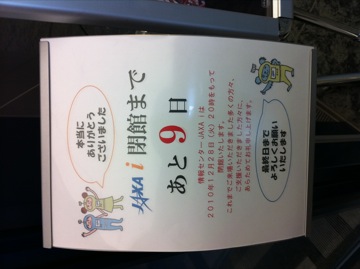 本当に
ありがとう
ございました
JAXA i 閉館まで
あと9日
情報センター JAXA i は
2010年12月28日（火）20時をもって
閉館いたします。
これまでご来場いただきました多くの方々、
ご支援いただきました方々に、
あらためてお礼申し上げます。
最終日まで
よろしくお願い
いたします